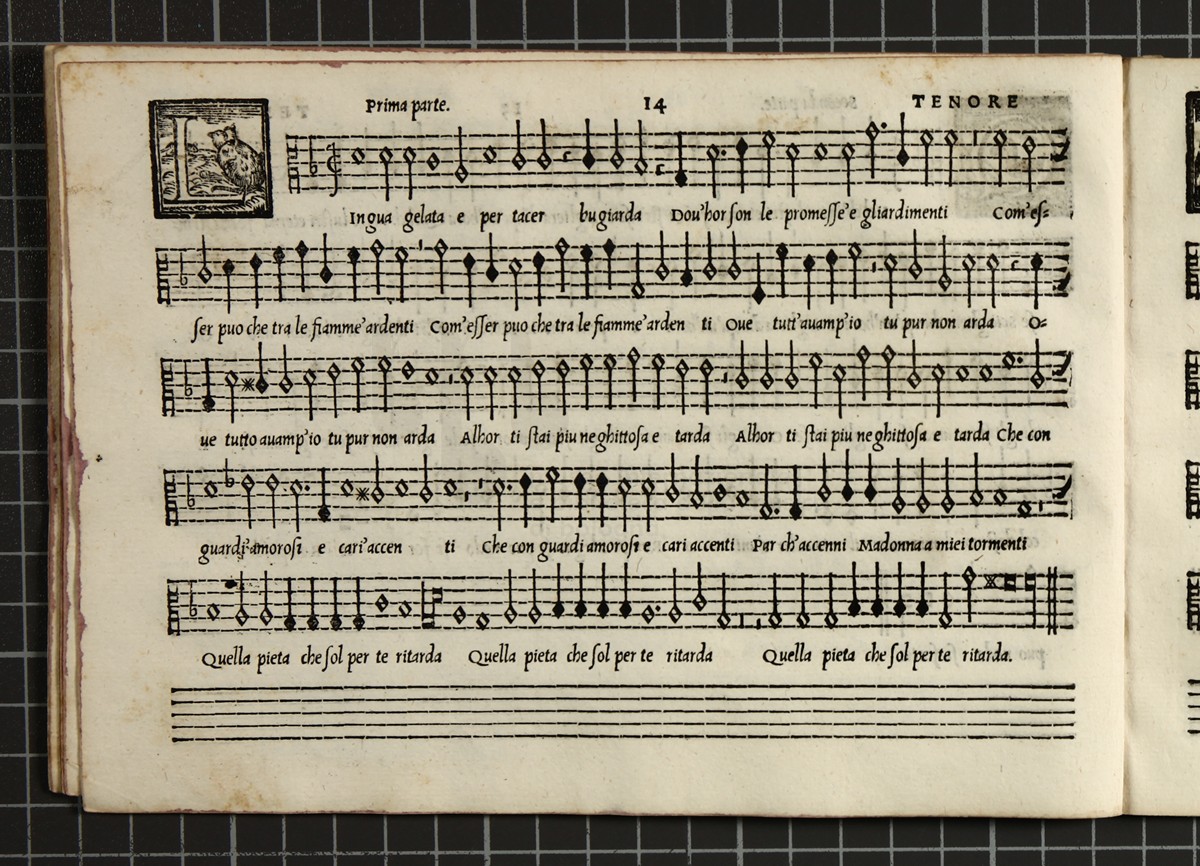 Prima parte. 14 TENORE
L Ingua gelata e per tacer bugiarda Dou'hor ſon le promeſſe'e gliardimenti Com'eſ=
ſer puo che tra le fiamme'ardenti Com'eſſer puo che tra le fiamme'arden ti Oue tutt'auamp'io tu pur non arda O=
ue tutto auamp'io tu pur non arda Alhor ti ſtai piu neghittoſa e tarda Alhor ti ſtai piu neghittoſa e tarda Che con
guardi'amoroſi e cari'accen ti Che con guardi amoroſi e cari accenti Par ch'accenni Madonna a miei tormenti
Quella pieta che ſol per te ritarda Quella pieta che ſol per te ritarda Quella pieta che ſol per te ritarda.